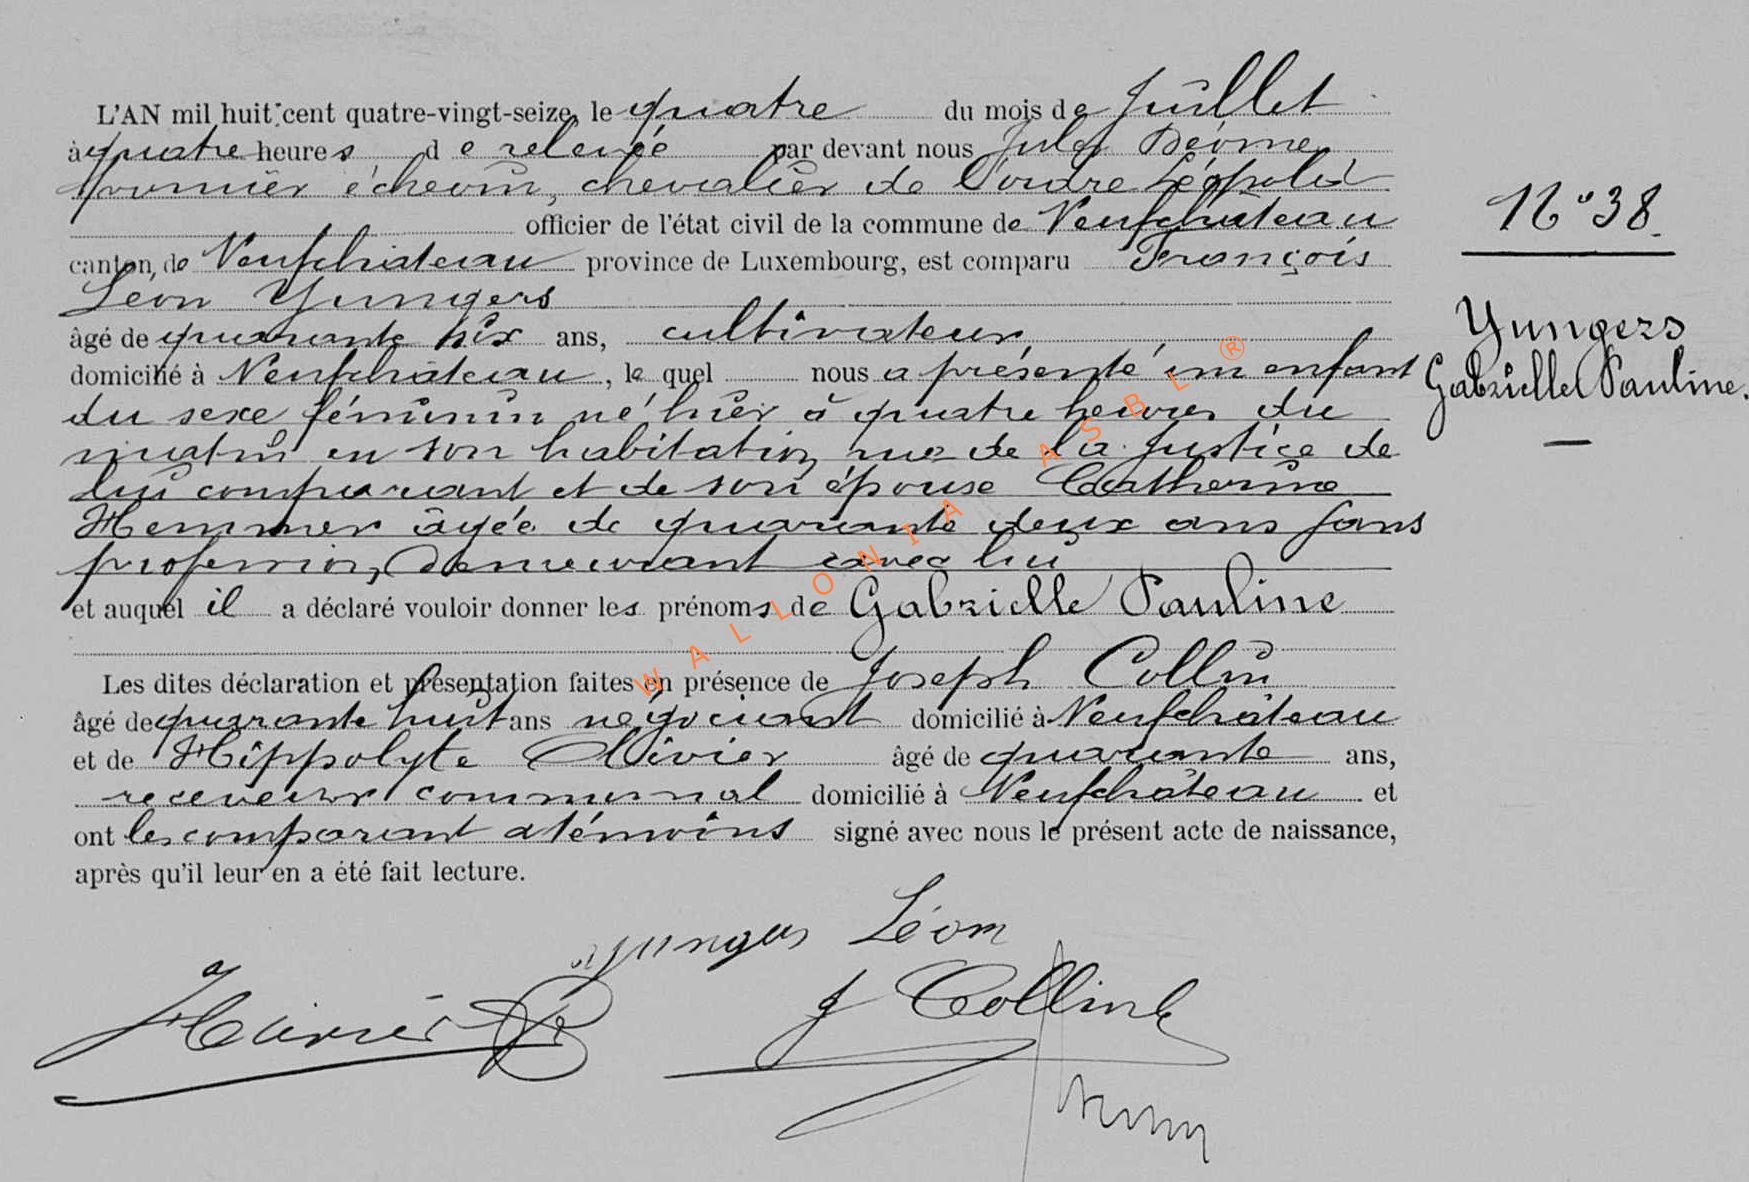 L'AN mil huit cent quatre-vingt-seize, le quatre du mois de Juillet
à quatre heures de relevée par devant nous Jules
premier échevin, chevalier de l'ordre Léopold
officier de l'état civil de la commune de Neufchâteau
canton de Neufchâteau province de Luxembourg, est comparu François
Léon Yungers
âgé de quarante six ans, cultivateur,
domicilié à Neufchâteau, le quel nous a présenté un enfant
du sexe féminin né hier à quatre heures du
matin en son habitation rue de la Justice de
lui comparant et de son épouse Catherine
Hemmer âgée de quarante deux ans sans
profession, demeurant avec lui
et auquel il a déclaré vouloir donner les prénoms de Gabrielle Pauline
Les dites déclaration et présentation faites en présence de Joseph Collin
âgé de quarante huit ans négociant domicilié à Neufchâteau
et de Hippolyte Olivier âgé de quarante ans,
receveur communal domicilié à Neufchâteau et
ont les comparant et témoins signé avec nous le présent acte de naissance,
après qu'il leur en a été fait lecture.
N° 38.
Yungers
Gabrielle Pauline.
Yungers Léon
J Collin
WALLONIA ASBL ®